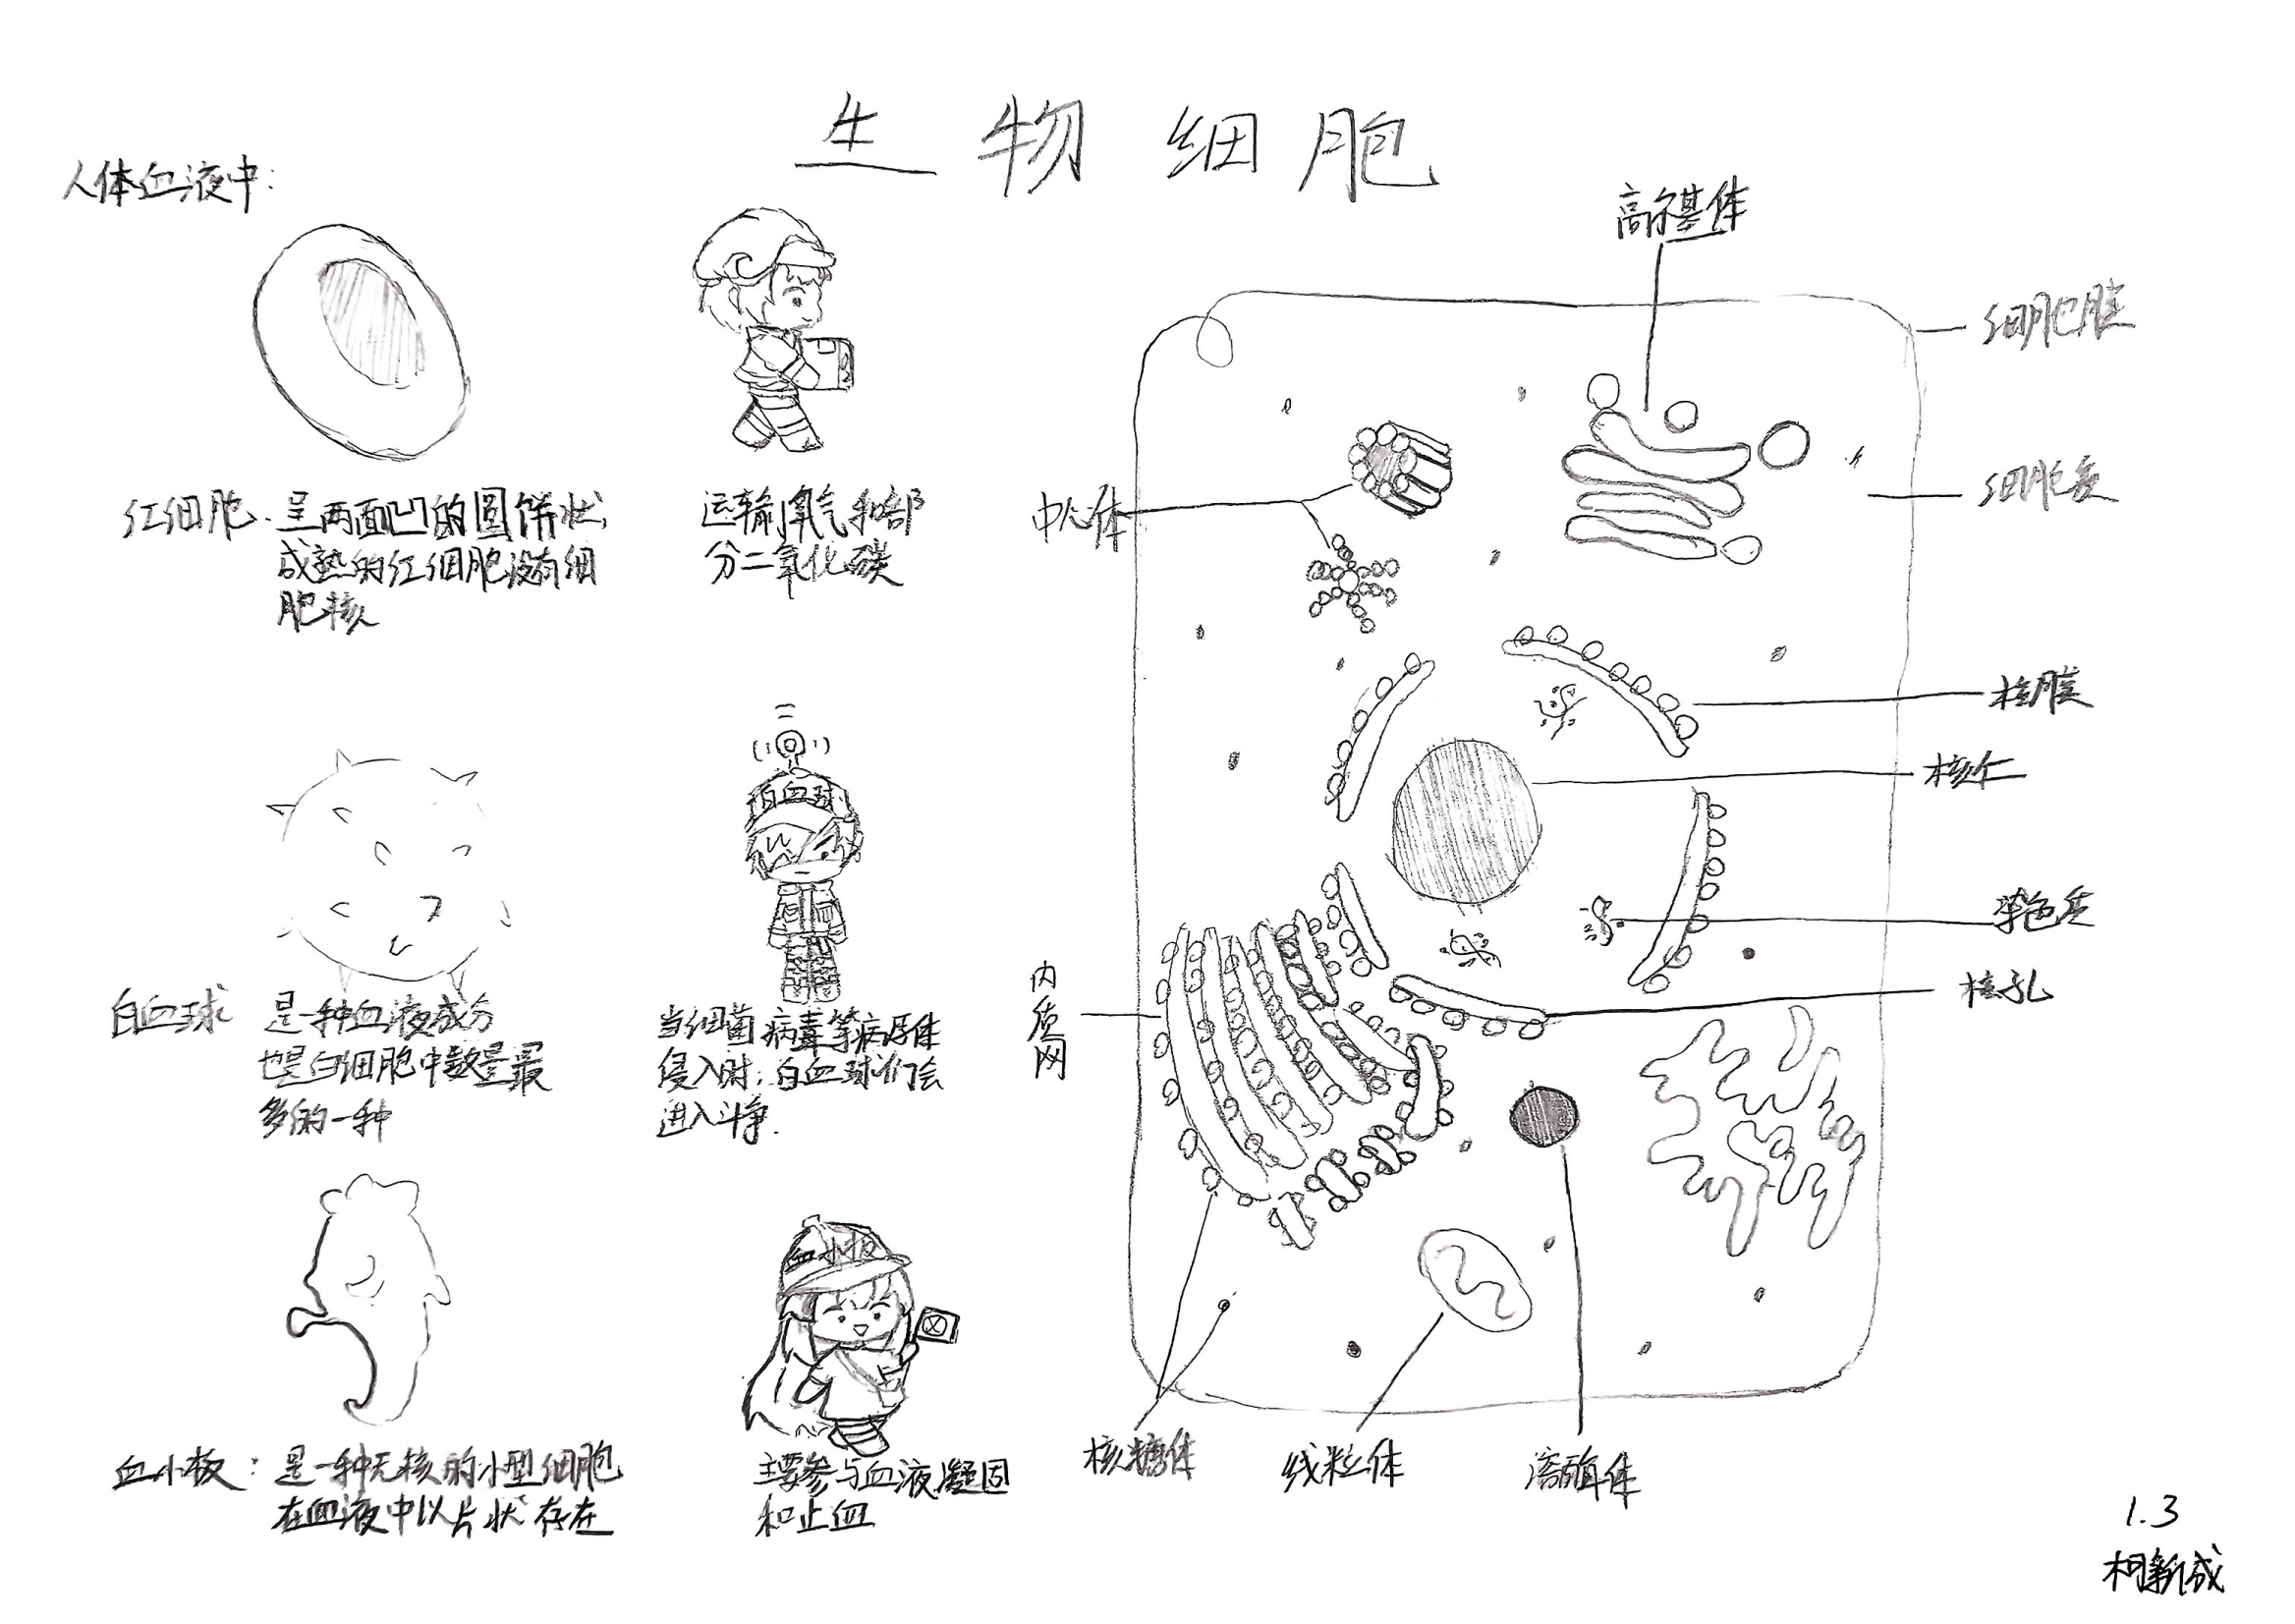 生物细胞
人体血液中:
红细胞.呈两面凹的圆饼状,
成熟的红细胞没有细
胞核
运输氧气和部
分二氧化碳
白血球
白血球 是一种血液成分
也是白细胞中数量最
多的一种
当细菌病毒等病原体
侵入时,白血球们会
进入斗争.
血小板
血小板:是一种无核的小型细胞
在血液中以片状存在
主要参与血液凝固
和止血
高尔基体
细胞膜
细胞质
中心体
核膜
核仁
染色质
核孔
内质网
核糖体
线粒体
溶酶体
1.3
柯新成